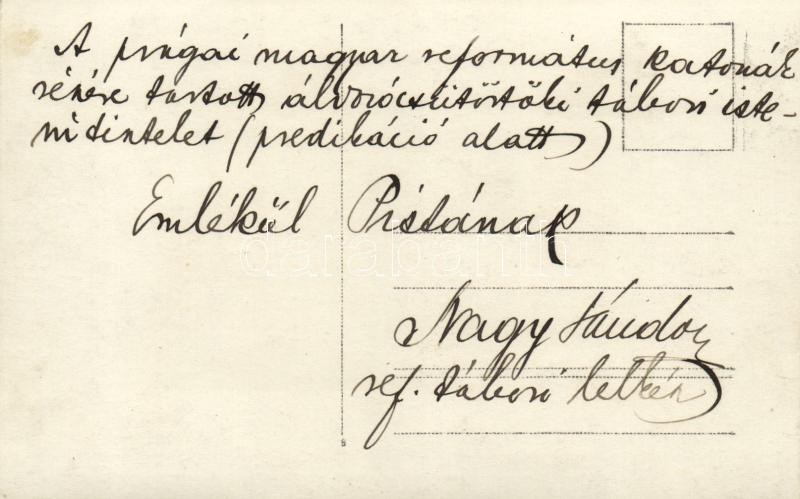 A prágai magyar református katonák
részére tartott áldozócsütörtöki tábori iste-
nitisztelet (predikáció alatt)
Emlékül Pistának
Nagy Sándor
ref. tábori lelkész
darabanth